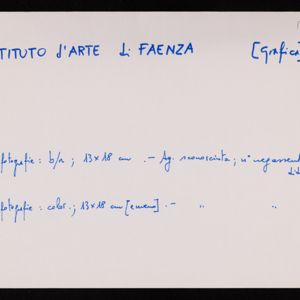 TITUTO d'ARTE di FAENZA [Grafica
fotografie: b/n; 13x18 cm .- Ag. sconosciuta; n° negassent
fotografie: color.; 13x18 cm [e meno] .- " "